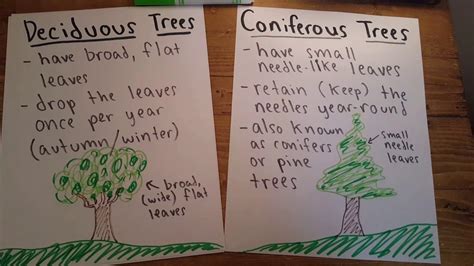 Deciduous Trees
- have broad, flat
leaves
- drop the leaves
once per year
(autumn/winter)
broad,
(wide) flat
leaves
Coniferous Trees
- have small
needle-like leaves
- retain (keep) the
needles year-round
- also known
as conifers
or pine
trees
small
needle
leaves